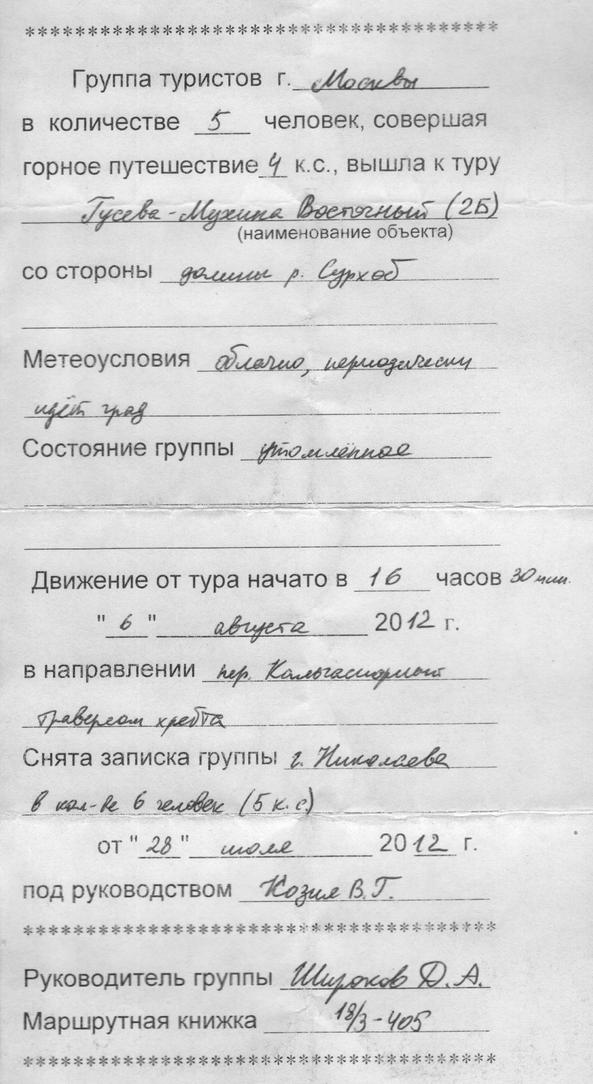 **************************************
Группа туристов г. Москвы
в количестве 5 человек, совершая
горное путешествие 4 к.с., вышла к туру
Гусева-Мухина Восточный (2Б)
(наименование объекта)
со стороны долины р. Сурхоб
Метеоусловия облачно, периодически
идёт град
Состояние группы утомлённое
Движение от тура начато в 16 часов 30 мин.
"6" августа 2012 г.
в направлении пер.
траверсом хребта
Снята записка группы г. Николаева
в кол-ве 6 человек (5 к.с)
от "28" июля 2012 г.
под руководством Козия В.Г.
**************************************
Руководитель группы Широков Д.А.
Маршрутная книжка 18/3-405
**************************************